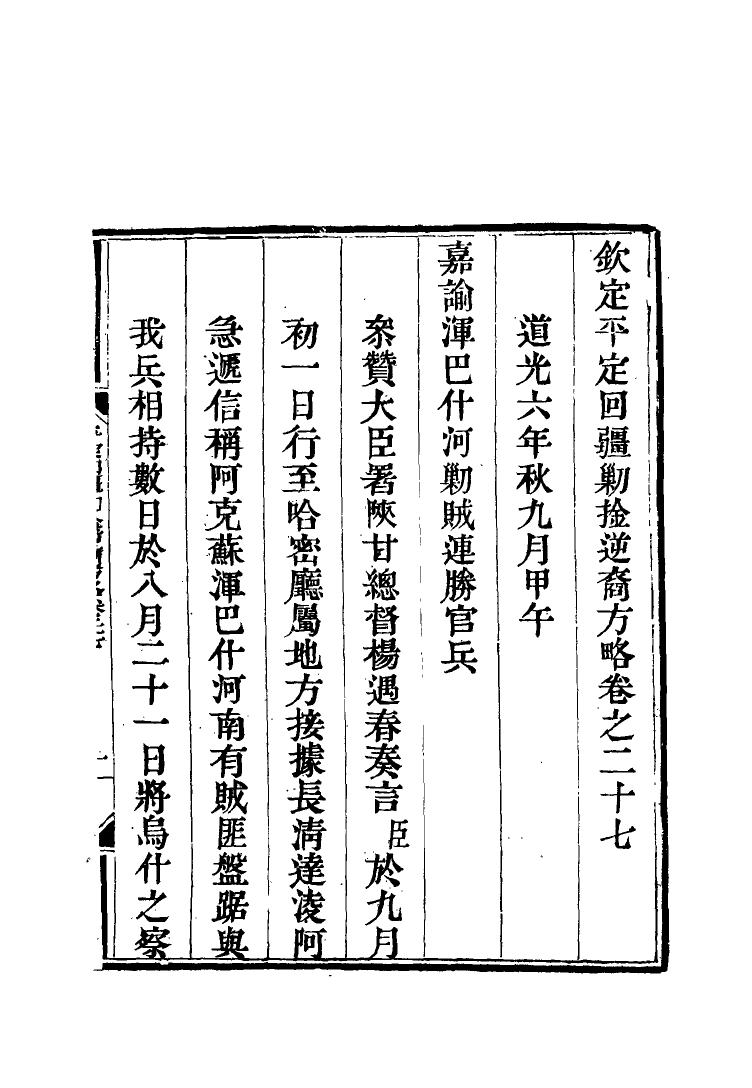 欽定平定回疆勦捦逆裔方略卷之二十七
道光六年秋九月甲午
嘉諭渾巴什河勦賊連勝官兵
叅贊大臣署陜甘總督楊遇春奏言臣於九月
初一日行至哈密廳屬地方接據長淸達凌阿
急遞信稱阿克蘇渾巴什河南有賊匪盤踞與
我兵相持數日於八月二十一日將烏什之察